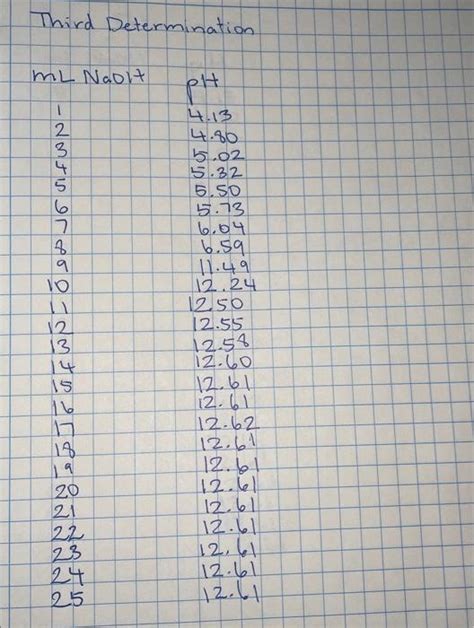 Third Determination
mL NaOH pH
1 4.13
2 4.80
3 5.02
4 5.32
5 5.50
6 5.73
7 6.04
8 6.59
9 11.49
10 12.24
11 12.50
12 12.55
13 12.58
14 12.60
15 12.61
16 12.61
17 12.62
18 12.61
19 12.61
20 12.61
21 12.61
22 12.61
23 12.61
24 12.61
25 12.61